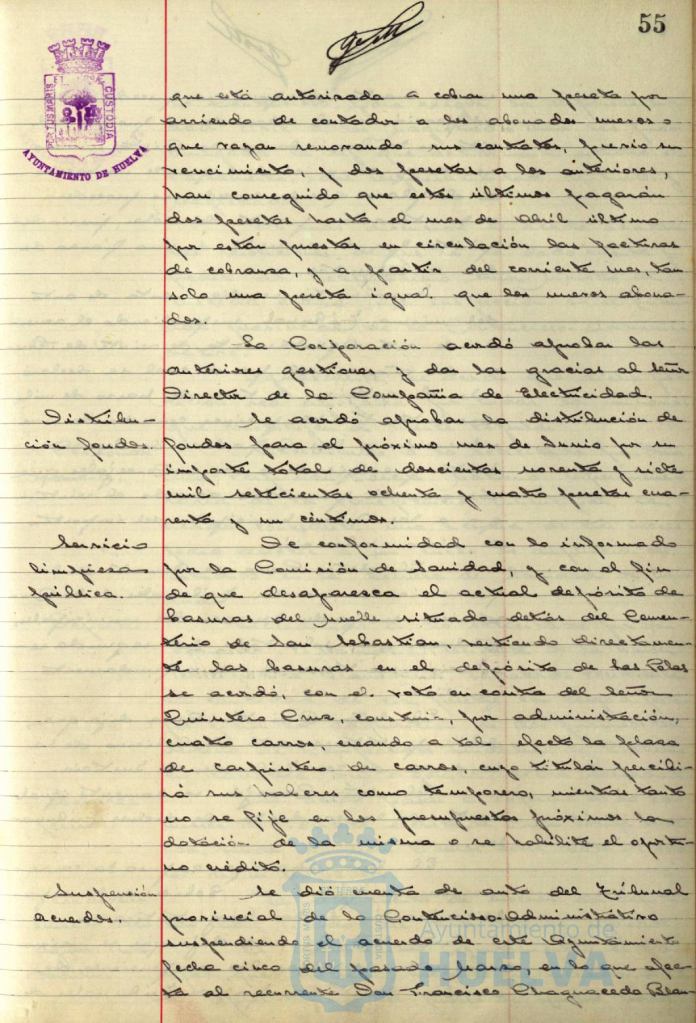 55
PORTUS MARIS ET TERRÆ CUSTODIA
AYUNTAMIENTO DE HUELVA
que está autorizada a cobrar una peseta por
arriendo de contador a los abonados nuevos o
que vayan renovando sus contratos, previo su
vencimiento, y dos pesetas a los anteriores,
han conseguido que estos últimos pagarán
dos pesetas hasta el mes de Abril último
por estar puestas en circulación las facturas
de cobranza, y a partir del corriente mes, tan
solo una peseta igual que los nuevos abona-
dos.
La Corporación acordó aprobar las
anteriores gestiones y dar las gracias al Señor
Director de la Compañía de Electricidad.
Distribu-
ción fondos.
Se acordó aprobar la distribución de
fondos para el próximo mes de Junio por su
importe total de doscientas noventa y siete
mil setecientas ochenta y cuatro pesetas cua-
renta y un céntimos.
Servicio
limpieza
pública.
De conformidad con lo informado
por la Comisión de Sanidad, y con el fin
de que desaparesca el actual depósito de
basuras del muelle situado detrás del Cemen-
terio de San Sebastian, vertiendo directamen-
te las basuras en el depósito de Las Polas
se acordó, con el voto en contra del Señor
Quintero Cruz, construir, por administración,
cuatro carros, creando a tal efecto la plaza
de carpintero de carros, cuyo titular percibi-
rá sus haberes como temporero, mientras tanto
no se fije en los presupuestos próximos la
dotación de la misma o se habilite el oportu-
no crédito.
Suspensión
acuerdos.
Se dió cuenta de auto del Tribunal
provincial de lo Contencioso-Administrativo
suspendiendo el acuerdo de este Ayuntamiento
fecha cinco del pasado Marzo, en lo que afec-
ta al recurrente Don Francisco Chaguaceda Blan-
Ayuntamiento de
HUELVA